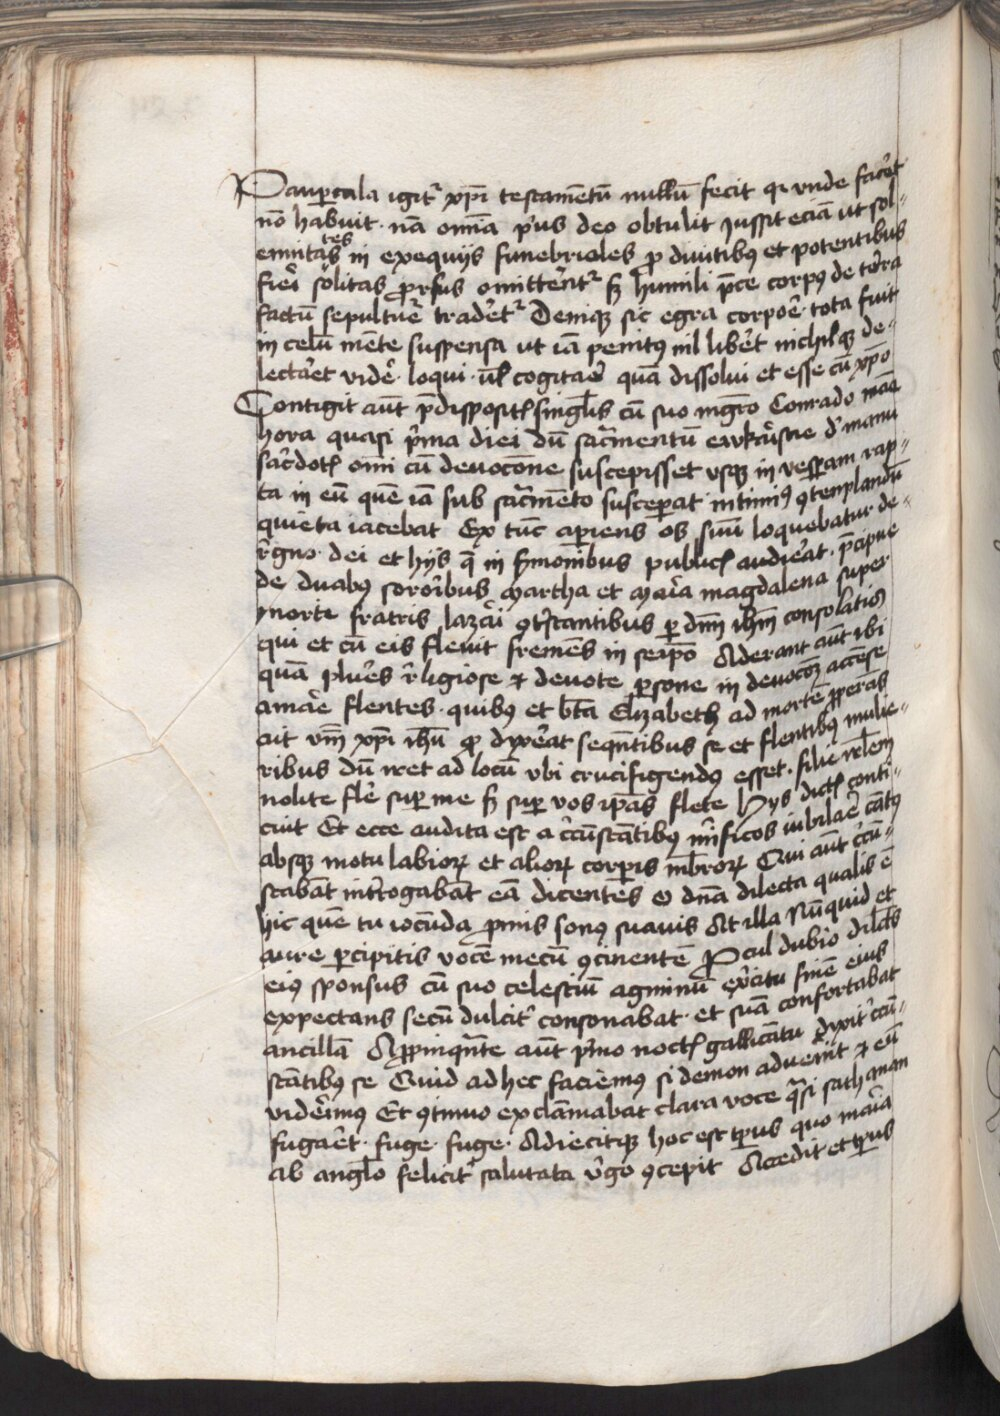 Paup̄cula igit᷑ xp̄i testamētū nullū fecit q̄ unde fac̄et
nō habuit · nā om̄ia p̄us deo obtulit Jussit eciā ut sol-
emnitates in exequijs funebriales ꝓ diuitibꝰ et potentibus
fieri solitas ꝓrsus omitte᷑nt᷑ sꝫ humili p̄ce corpꝰ de terra
factū sepultur̄e trader̄et᷑ Deniqꝫ sic egra corpoe᷑ · tota fuit
in celū mēte suspensa ut iā penitꝰ nil liber̄et nichilqꝫ de-
lectar̄et vider̄e · loqui · ul̄ cogitar̄e quā dissolui et esse cū xp̄o
Contigit aūt p̄dispositꝭ singl̄is cū suo mgr̄o Conrado
hora quasi p̄ma diei dū sacr̄mentū eukaristie d̄ manu
sacerdotꝭ om̄i cū deuocōne suscepisset usqꝫ in vesperam rap-
ta in eū quē iā sub sacr̄mēto susceperat intimiꝰ ꝯtemplandū
quieta iacebat Ex tūc aperiens os suū loquebatur de
r̄gno · dei et hijs q̄ in sermonibus publicꝭ audier̄at · p̄cipue
de duabꝰ sororibus Martha et maria magdalena super
morte fratris lazari ꝯtristantibus per dn̄m ih̄m consolatiꝭ
qui et cū eis fleuit fremēs in seip̄o Aderant aūt ibi
quā plures r̄ligiose ⁊ deuote ꝑsone in deuocōꝫ accēse
amar̄e flentes · quibꝰ et bt̄a Elizabeth ad mortē ꝓperās
ait um̄ xp̄i ih̄u qd̄ dyxer̄at seqn̄tibus se et flentibꝰ mulie-
ribus dū iret ad locū ubi crucifigendꝰ esset · filie irl̄em
nolite fler̄e super me sꝫ super vos ip̄as flete Hys dictꝭ conti-
cuit Et ecce audita est a cir̄cūstātibꝰ mir̄ificos iubilar̄e cātꝰ
absqꝫ motu labioꝝ et alioꝝ corp̄is mb̄roꝝ Qui aūt cir̄cū-
stabāt inter̄rogabāt eā dicentes o dn̄a dilecta qualis ē
hic quē tu iocūda promis sonꝰ suauis At illa Nūquid et
aure percipitis vocē mecū ꝯcinentē Procul dubio dilc̄s
eiꝰ sponsus cū suo celestiū agminū exer̄citu finē eius
expectans secū dulcit᷑ consonabat · et suā confortabat
ancillā Appinqn̄te aūt p̄mo noctꝭ gallicātu dyxit cir̄cū-
stātibꝰ se Quid ad hec faciemꝰ si demon aduener̄it ⁊ eū
vider̄imꝰ Et ꝯtinuo exclamabat clara voce q̄si sathanan
fugar̄et · fuge · fuge · Adiecitqꝫ hoc est tp̄us quo maria
ab angl̄o felicit᷑ salutata vir̄go ꝯcepit Accedit et tp̄us